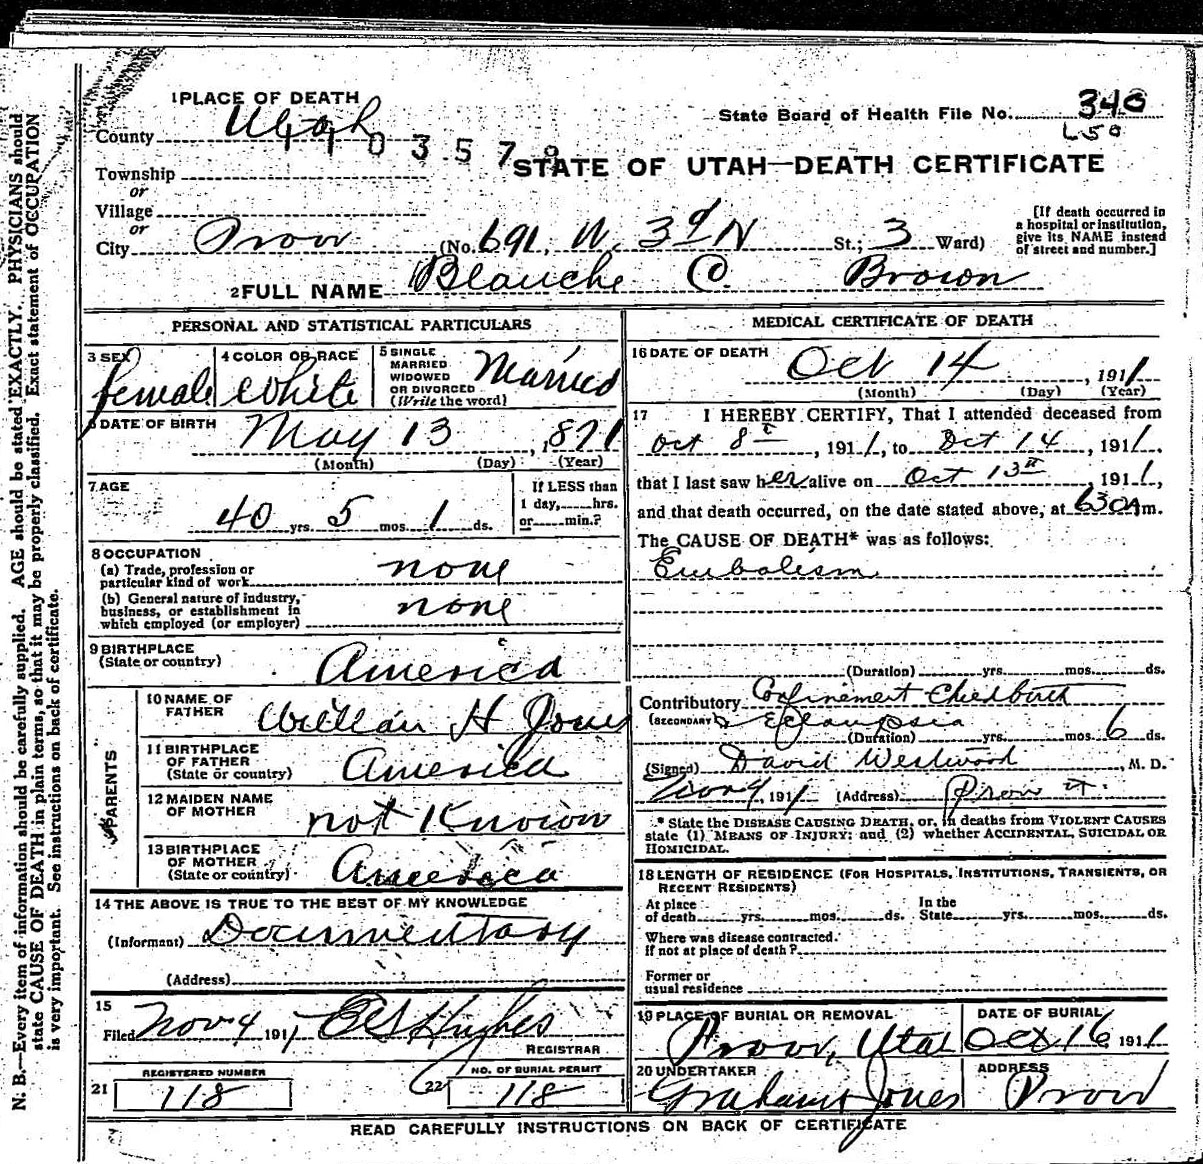 1 PLACE OF DEATH
County Utah
State Board of Health File No. 340
L50
STATE OF UTAH—DEATH CERTIFICATE
Township
or
Village
or
City Provo (No. 691 W. 3d N St.; 3 Ward)
[If death occurred in
a hospital or institution,
give its NAME instead
of street and number.]
2 FULL NAME Blanche C. Brown
PERSONAL AND STATISTICAL PARTICULARS
3 SEX female
4 COLOR OR RACE White
5 SINGLE
MARRIED
WIDOWED
OR DIVORCED
(Write the word) Married
6 DATE OF BIRTH May 13, 1871
(Month) (Day) (Year)
7 AGE
40 yrs. 5 mos. 1 ds.
If LESS than
1 day, hrs.
or min.?
8 OCCUPATION
(a) Trade, profession or
particular kind of work none
(b) General nature of industry,
business, or establishment in
which employed (or employer) none
9 BIRTHPLACE
(State or country) America
PARENTS
10 NAME OF
FATHER William H Jones
11 BIRTHPLACE
OF FATHER
(State or country) America
12 MAIDEN NAME
OF MOTHER not Known
13 BIRTHPLACE
OF MOTHER
(State or country) America
14 THE ABOVE IS TRUE TO THE BEST OF MY KNOWLEDGE
(Informant) Documentary
(Address)
15
Filed Nov 4 1911 Hughes
REGISTRAR
21 REGISTERED NUMBER
118
22 NO. OF BURIAL PERMIT
118
MEDICAL CERTIFICATE OF DEATH
16 DATE OF DEATH
Oct 14, 1911
(Month) (Day) (Year)
17 I HEREBY CERTIFY, That I attended deceased from
Oct 8th, 1911, to Oct 14, 1911,
that I last saw her alive on Oct 13th, 1911,
and that death occurred, on the date stated above, at 630 Am.
The CAUSE OF DEATH* was as follows:
Embolism
(Duration) yrs. mos. ds.
Contributory Confinement Childbirth
(SECONDARY) & Eclampsia
(Duration) yrs. mos. 6 ds.
(Signed) David Westwood, M. D.
Nov 4, 1911 (Address) Provo Ut.
* State the DISEASE CAUSING DEATH, or, in deaths from VIOLENT CAUSES
state (1) MEANS OF INJURY; and (2) whether ACCIDENTAL, SUICIDAL OR
HOMICIDAL.
18 LENGTH OF RESIDENCE (FOR HOSPITALS, INSTITUTIONS, TRANSIENTS, OR
RECENT RESIDENTS)
At place
of death yrs. mos. ds.
In the
State yrs. mos. ds.
Where was disease contracted.
If not at place of death?
Former or
usual residence
19 PLACE OF BURIAL OR REMOVAL
Provo, Utah
DATE OF BURIAL
Oct 16 1911
20 UNDERTAKER
Graham Jones
ADDRESS
Provo
READ CAREFULLY INSTRUCTIONS ON BACK OF CERTIFICATE
N. B.—Every item of information should be carefully supplied. AGE should be stated EXACTLY. PHYSICIANS should
state CAUSE OF DEATH in plain terms, so that it may be properly classified. Exact statement of OCCUPATION
is very important. See instructions on back of certificate.